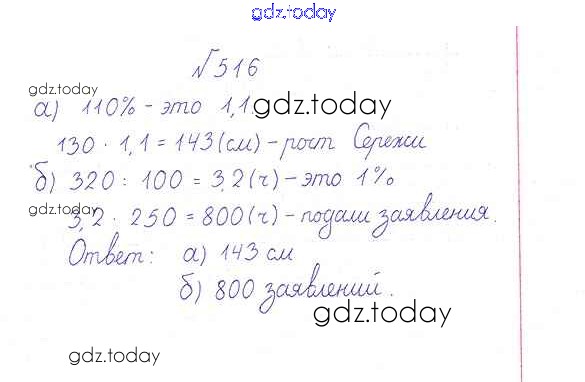 gdz.today
№516
gdz.today
а) 110% - это 1,1. gdz.today
130 · 1,1 = 143 (см) - рост Сережи
б) 320 : 100 = 3,2 (ч) - это 1%
gdz.today
3,2 · 250 = 800 (ч) - подали заявления.
Ответ: а) 143 см
б) 800 заявлений.
gdz.today
gdz.today